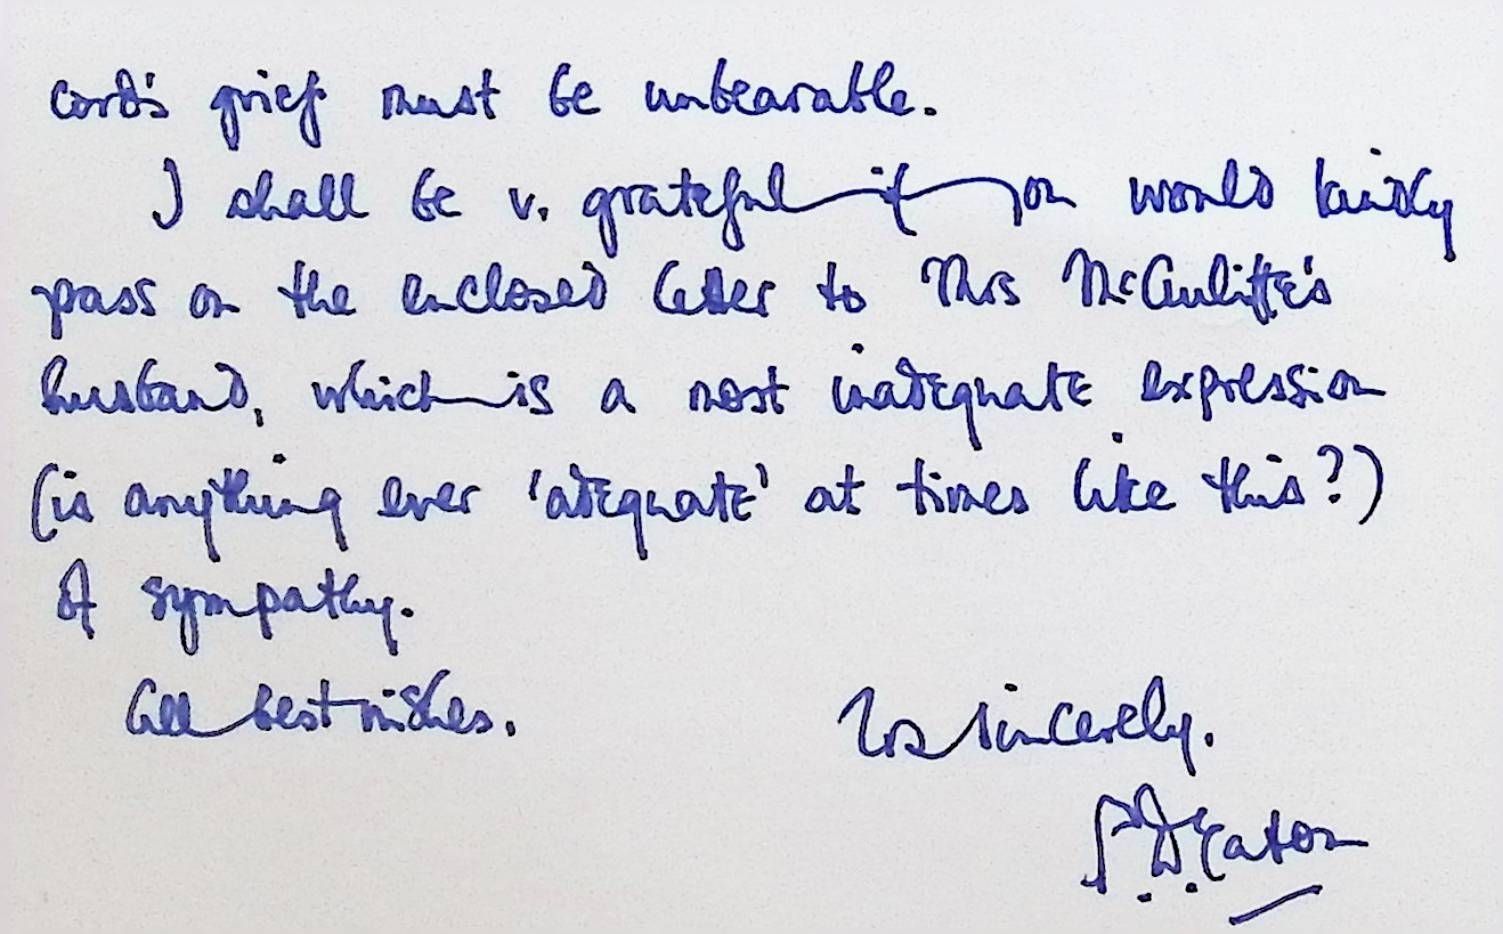 cord's grief must be unbearable.
I shall be v. grateful if you would kindly
pass on the enclosed letter to Mrs McAuliffe's
husband, which is a most inadequate expression
(is anything ever 'adequate' at times like this?)
of sympathy.
All best wishes.
Yrs sincerely.
P.D. Eaton